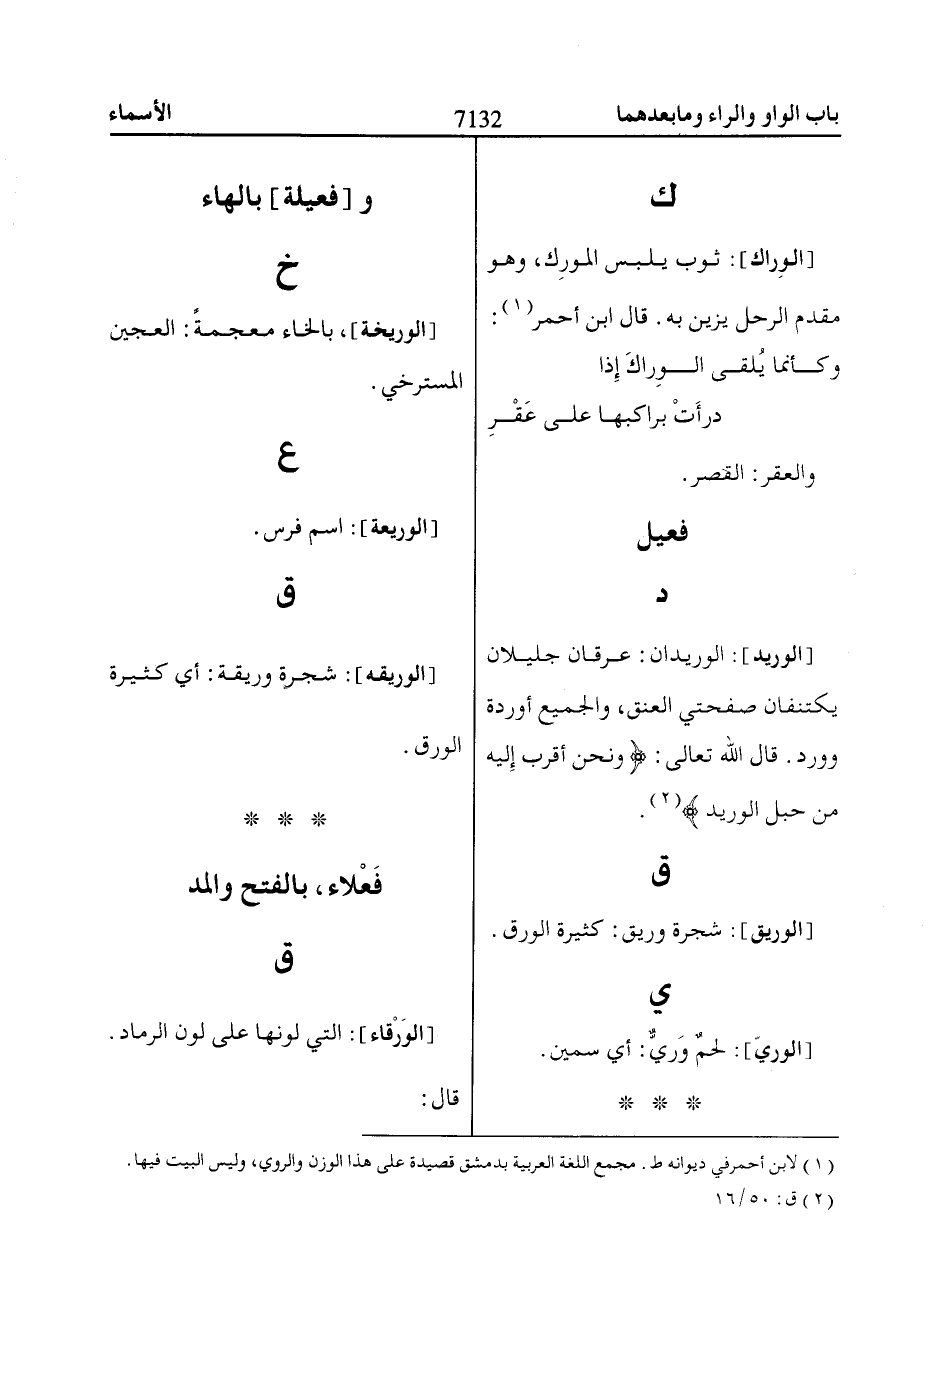 باب الواو والراء ومابعدهما 7132 الأسماء
ك
[الوِراك]: ثوب يلبس المورك، وهو
مقدم الرحل يزين به. قال ابن أحمر(١):
وكأنما يُلقى الوِراكَ إِذا
درأَتْ براكبها على عَقْرِ
والعقر: القصر.
فعيل
د
[الوريد]: الوريدان: عرقان جليلان
يكتنفان صفحتي العنق، والجميع أوردة
وورد. قال الله تعالى: ﴿ونحن أقرب إِليه
من حبل الوريد﴾(٢).
ق
[الوريق]: شجرة وريق: كثيرة الورق.
ي
[الوريّ]: لحمٌ وَريٌّ: أي سمين.
* * *
و [فعيلة] بالهاء
خ
[الوريخة]، بالخاء معجمةً: العجين
المسترخي.
ع
[الوريعة]: اسم فرس.
ق
[الوريقه]: شجرةٍ وريقة: أي كثيرة
الورق.
* * *
فَعْلاء، بالفتح والمد
ق
[الوَرْقاء]: التي لونها على لون الرماد.
قال:
(١) لابن أحمرفي ديوانه ط. مجمع اللغة العربية بدمشق قصيدة على هذا الوزن والروي، وليس البيت فيها.
(٢) ق: ٥٠/ ١٦